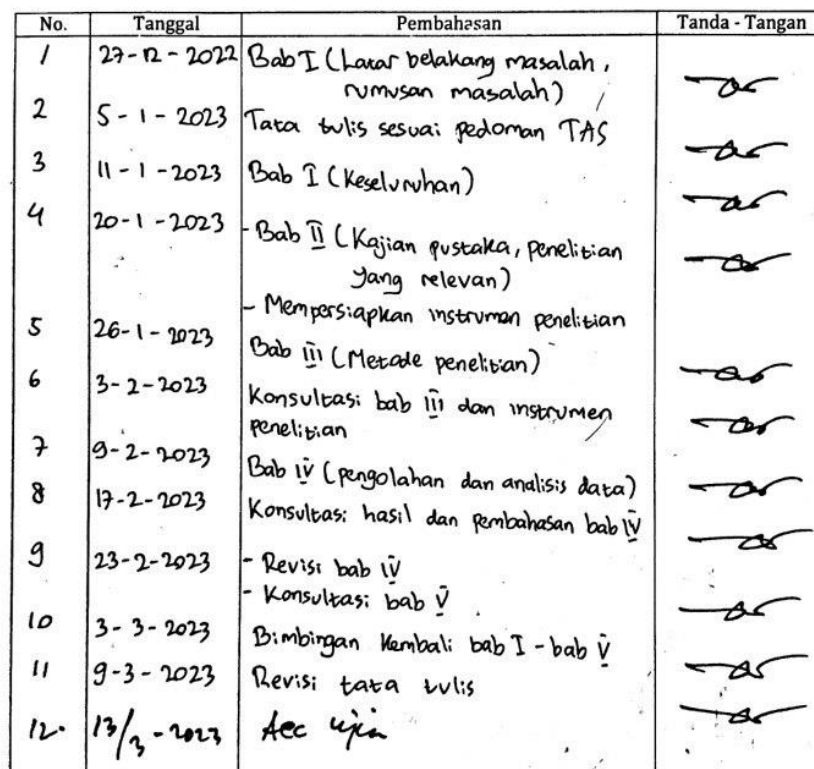 No. Tanggal Pembahasan Tanda - Tangan
1 27-12-2022 Bab I (Latar belakang masalah,
rumusan masalah)
2 5-1-2023 Tata tulis sesuai pedoman TAS
3 11-1-2023 Bab I (Keseluruhan)
4 20-1-2023 - Bab II (Kajian pustaka, penelitian
yang relevan)
- Mempersiapkan instrumen penelitian
5 26-1-2023 Bab III (Metode penelitian)
6 3-2-2023 Konsultasi bab III dan instrumen
penelitian
7 9-2-2023 Bab IV (pengolahan dan analisis data)
8 17-2-2023 Konsultasi hasil dan pembahasan bab IV
9 23-2-2023 - Revisi bab IV
- Konsultasi bab V
10 3-3-2023 Bimbingan Kembali bab I - bab V
11 9-3-2023 Revisi tata tulis
12. 13/3-2023 Acc ujian